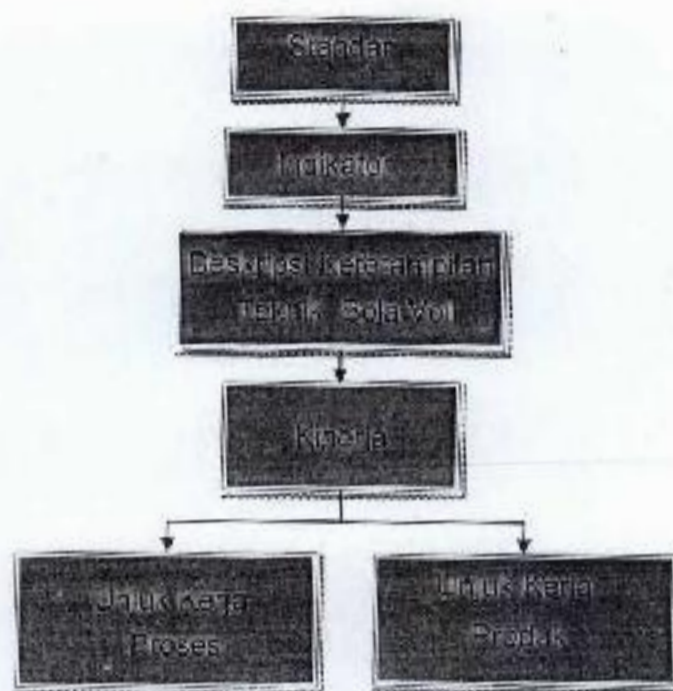 Standar
Indikator
Deskripsi keterampilan
Teknik Bola Voli
Kinerja
Unjuk Kerja
Proses
Unjuk Kerja
Produk